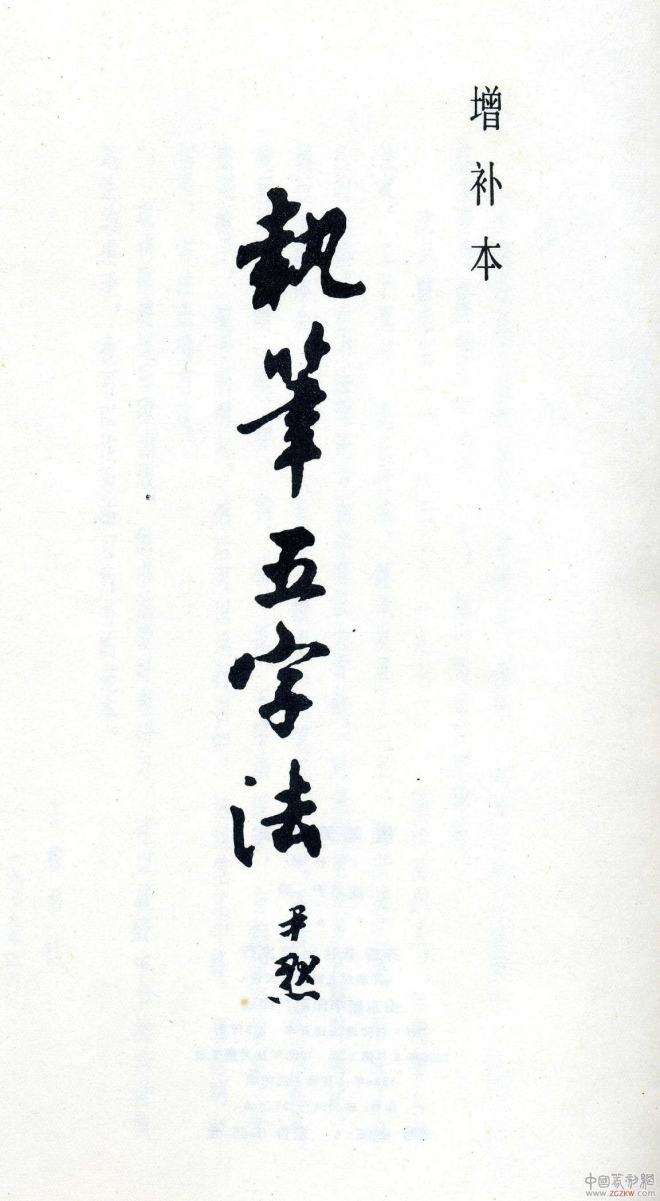 增补本
執筆五字法
尹默
中国篆刻網
www.ZGZKW.com